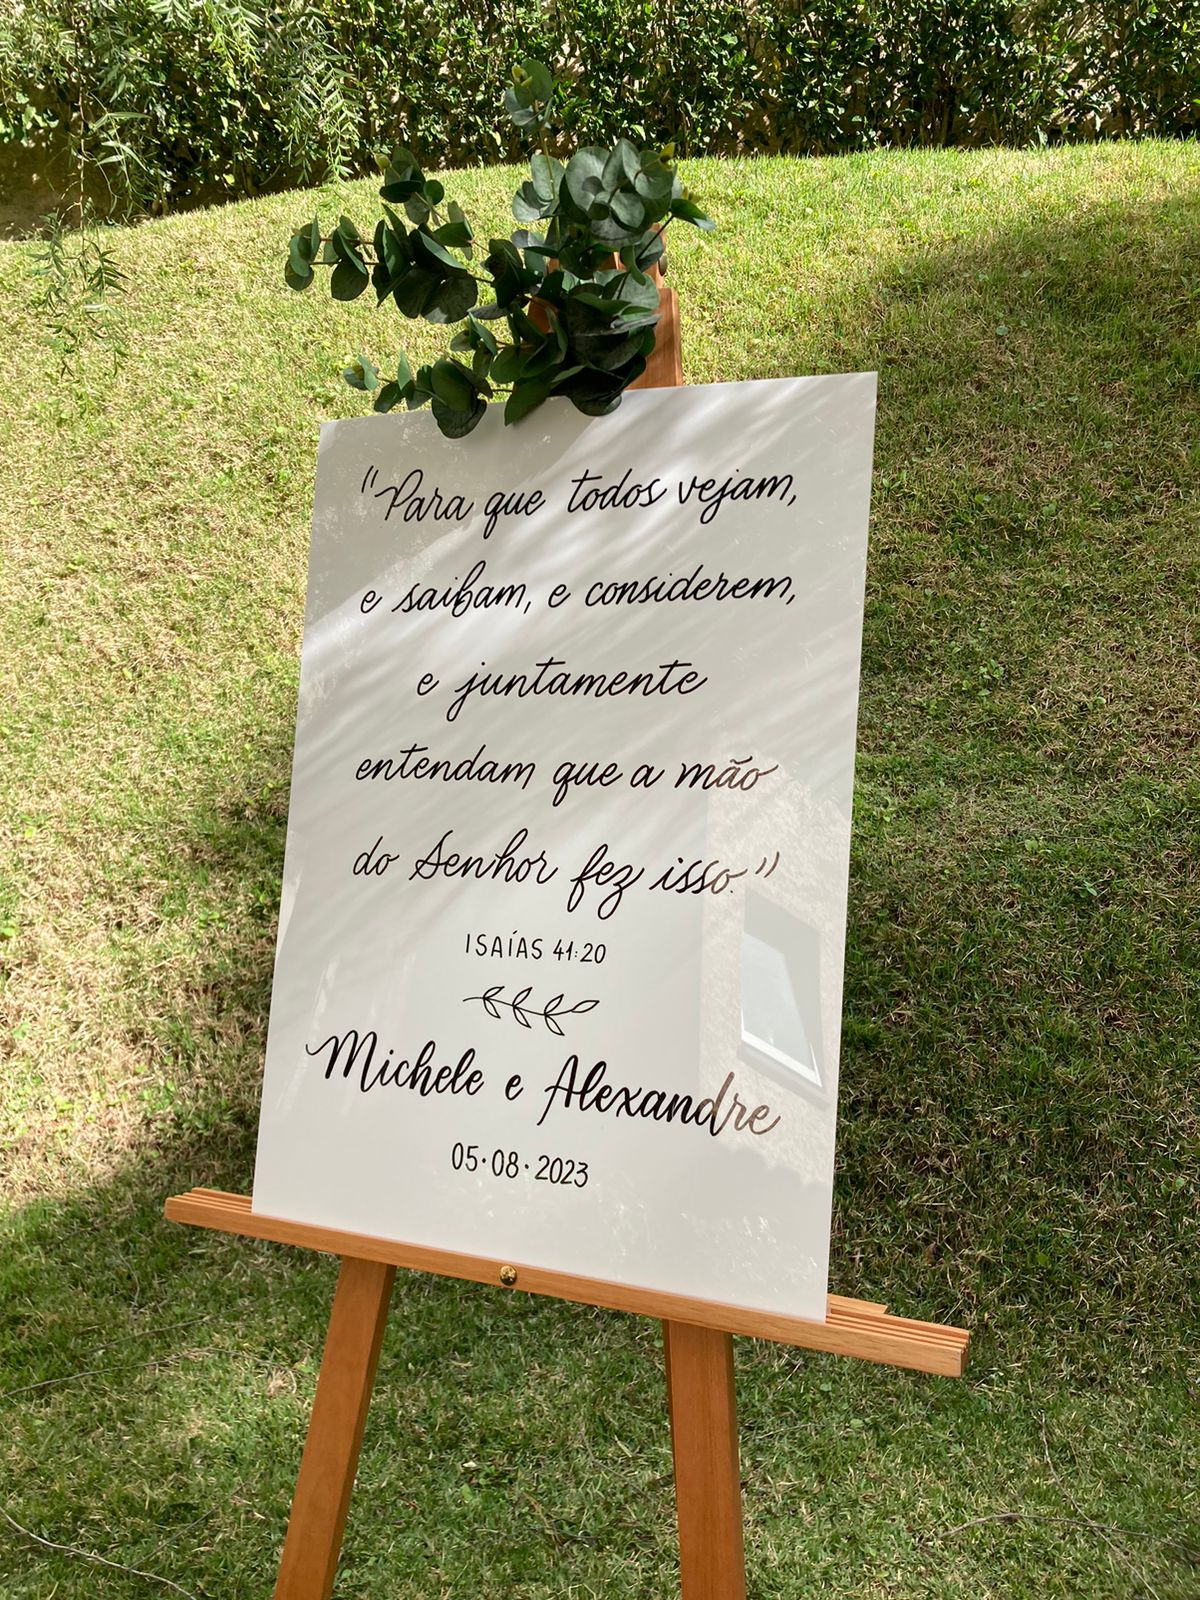 "Para que todos vejam,
e saibam, e considerem,
e juntamente
entendam que a mão
do Senhor fez isso."
ISAÍAS 41:20
Michele e Alexandre
05·08·2023